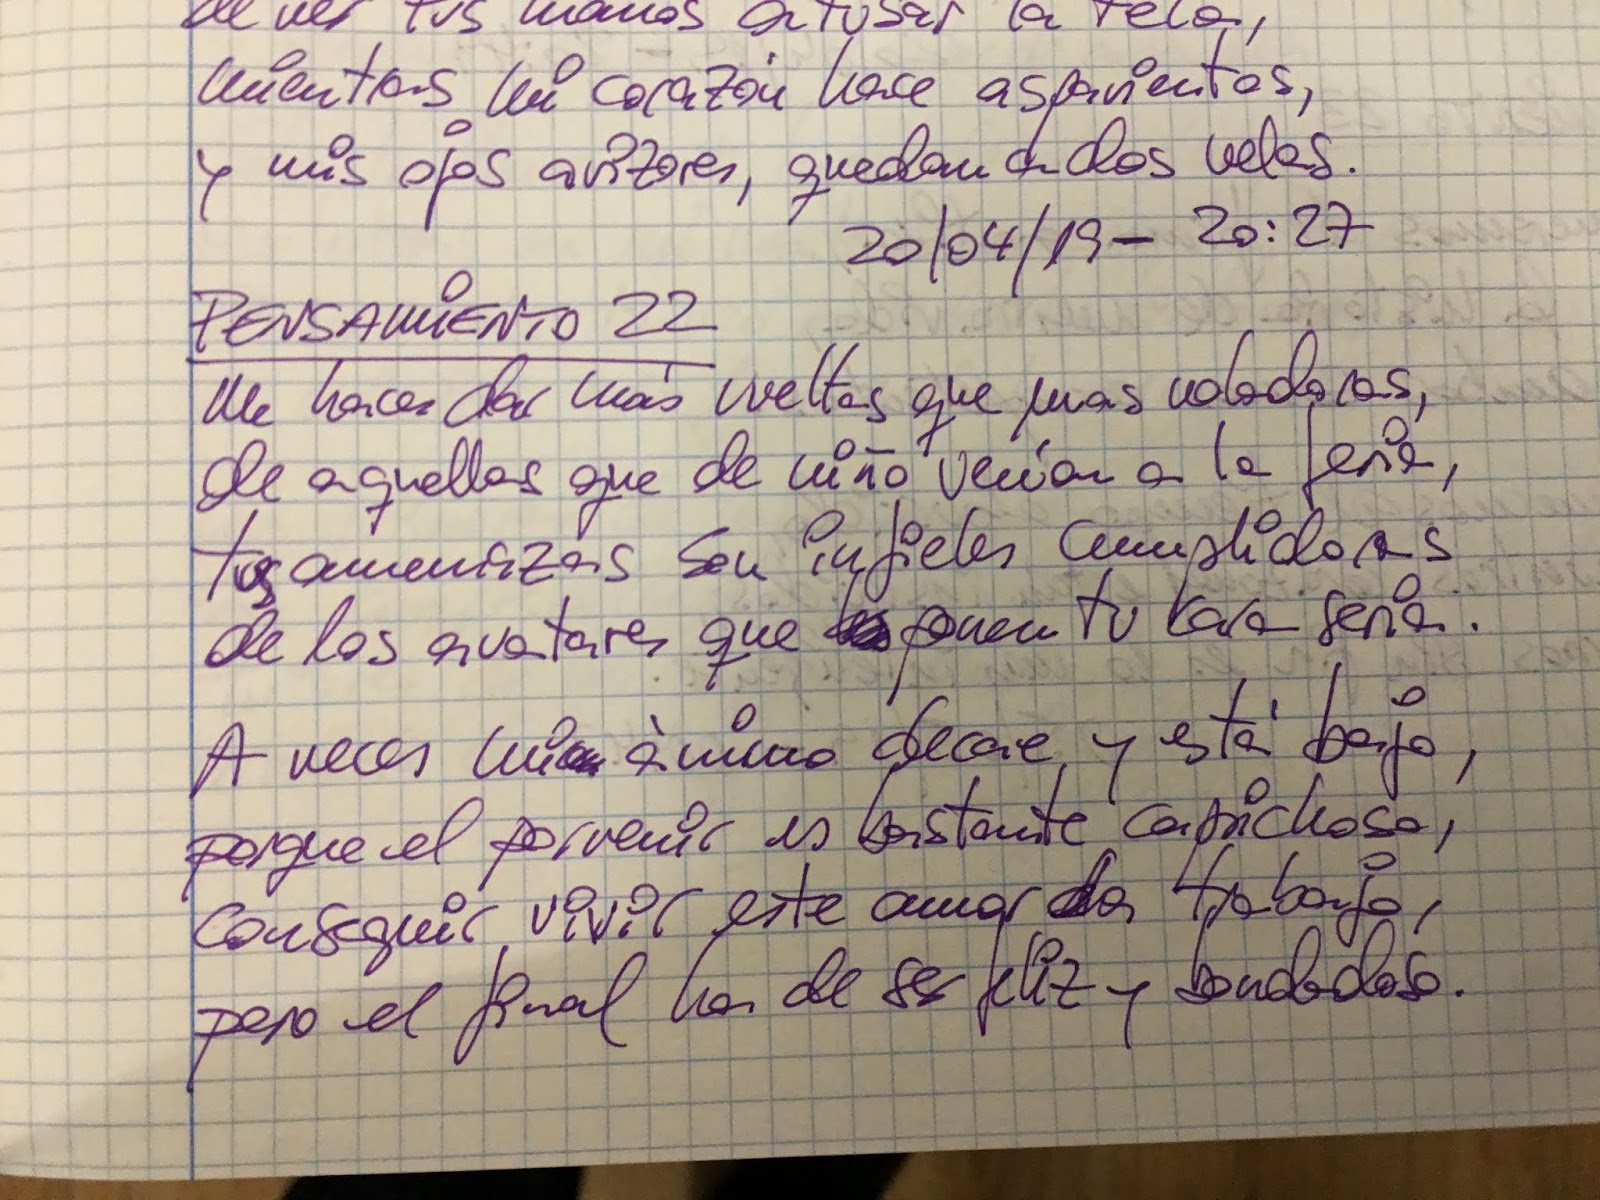 de ver tus manos atusar la tela,
mientras mi corazón hace aspavientos,
y mis ojos avizores, quedan a dos velas.
20/04/19 - 20:27
PENSAMIENTO 22
Me haces dar más vueltas que unas voladoras,
de aquellas que de niño venían a la feria,
tus amenazas son infieles cumplidoras
de los avatares que ponen tu cara seria.
A veces mi ánimo decae, y está bajo,
porque el porvenir es bastante caprichoso,
conseguir vivir este amor da trabajo,
pero el final ha de ser feliz y bondadoso.